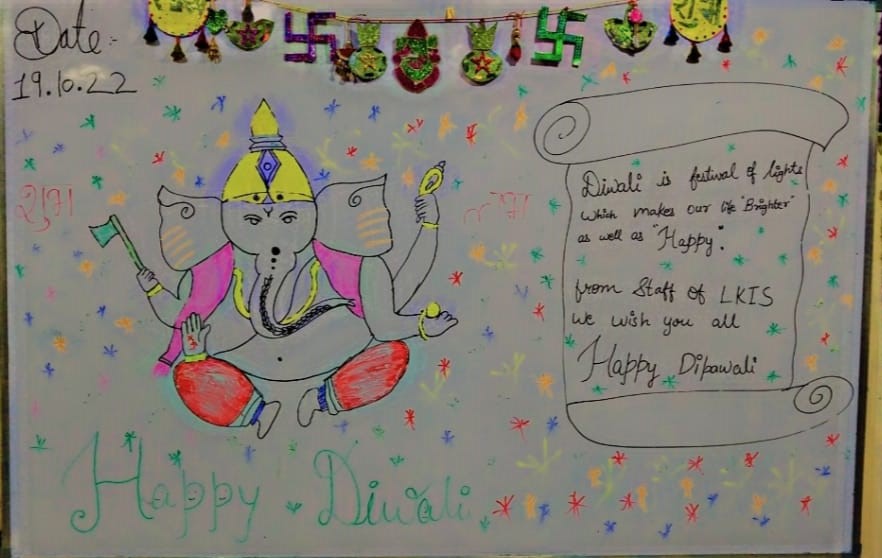 Date:-
19.10.22
शुभ
लाभ
Diwali is festival of lights
which makes our life "Brighter"
as well as "Happy".
from Staff of LKIS
we wish you all
Happy Dipawali
Happy Diwali